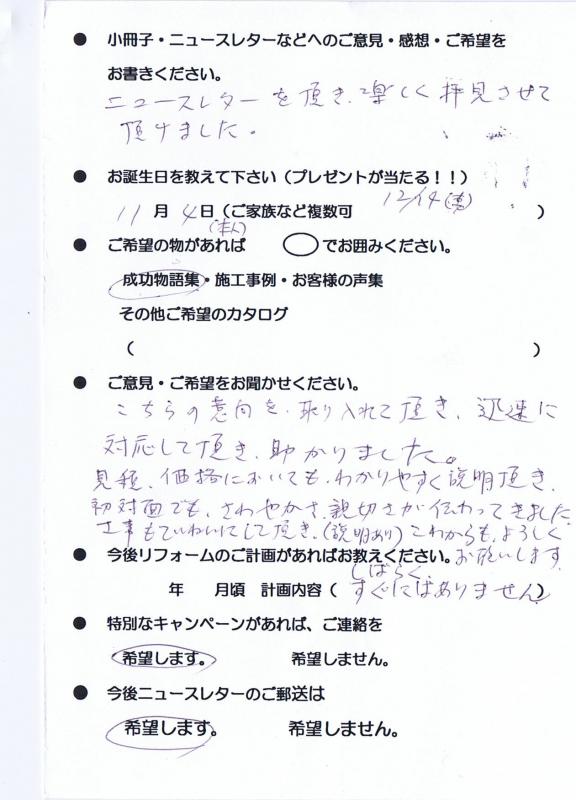 ● 小冊子・ニュースレターなどへのご意見・感想・ご希望を
お書きください。
ニュースレターを頂き、楽しく拝見させて
頂けました。
● お誕生日を教えて下さい（プレゼントが当たる！！）
12/14(妻)
11月4日（ご家族など複数可 ）
(本人)
● ご希望の物があれば ◯でお囲みください。
成功物語集・施工事例・お客様の声集
その他ご希望のカタログ
（ ）
● ご意見・ご希望をお聞かせください。
こちらの意向を、取り入れて頂き、迅速に
対応して頂き、助かりました。
見積、価格においても、わかりやすく説明頂き、
初対面でも、さわやかさ、親切さが伝わってきました
工事もていねいにして頂き、(説明あり)これからも、よろしく
お願いします
● 今後リフォームのご計画があればお教えください。
しばらく、
年 月頃 計画内容（すぐにはありません）
● 特別なキャンペーンがあれば、ご連絡を
希望します。 希望しません。
● 今後ニュースレターのご郵送は
希望します。 希望しません。